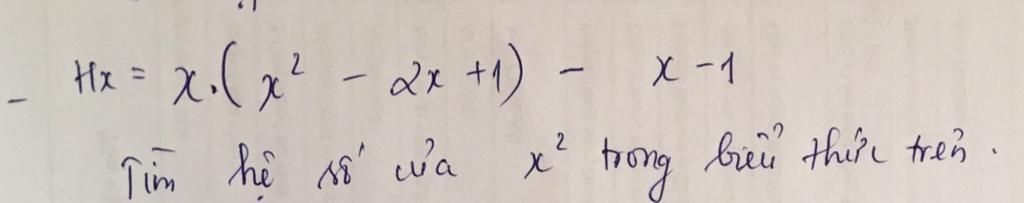 - Hx = x.(x² - 2x + 1) - x - 1
Tìm hệ số của x² trong biểu thức trên.